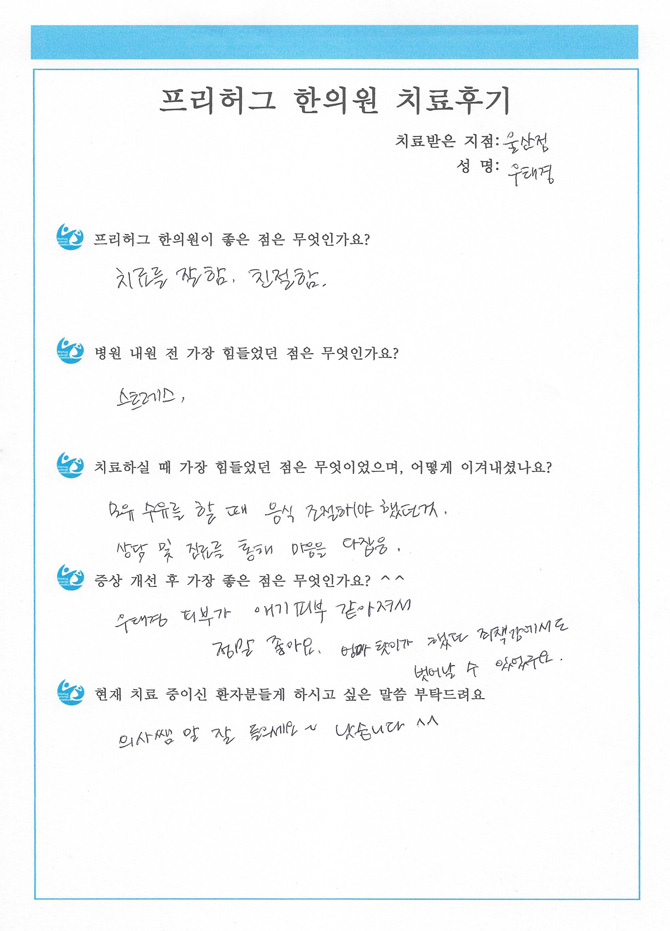 프리허그 한의원 치료후기
치료받은 지점: 울산점
성 명: 우태경
프리허그 한의원이 좋은 점은 무엇인가요?
치료를 잘함. 친절함.
병원 내원 전 가장 힘들었던 점은 무엇인가요?
스트레스,
치료하실 때 가장 힘들었던 점은 무엇이었으며, 어떻게 이겨내셨나요?
모유 수유를 할 때 음식 조절해야 했던것.
상담 및 진료를 통해 마음을 다잡음.
증상 개선 후 가장 좋은 점은 무엇인가요? ^^
우태경 피부가 애기피부 같아져서
정말 좋아요. 엄마 탓인가 했던 죄책감에서도
벗어날 수 있었구요.
현재 치료 중이신 환자분들게 하시고 싶은 말씀 부탁드려요
의사쌤 말 잘 들으세요~ 낫습니다 ^^